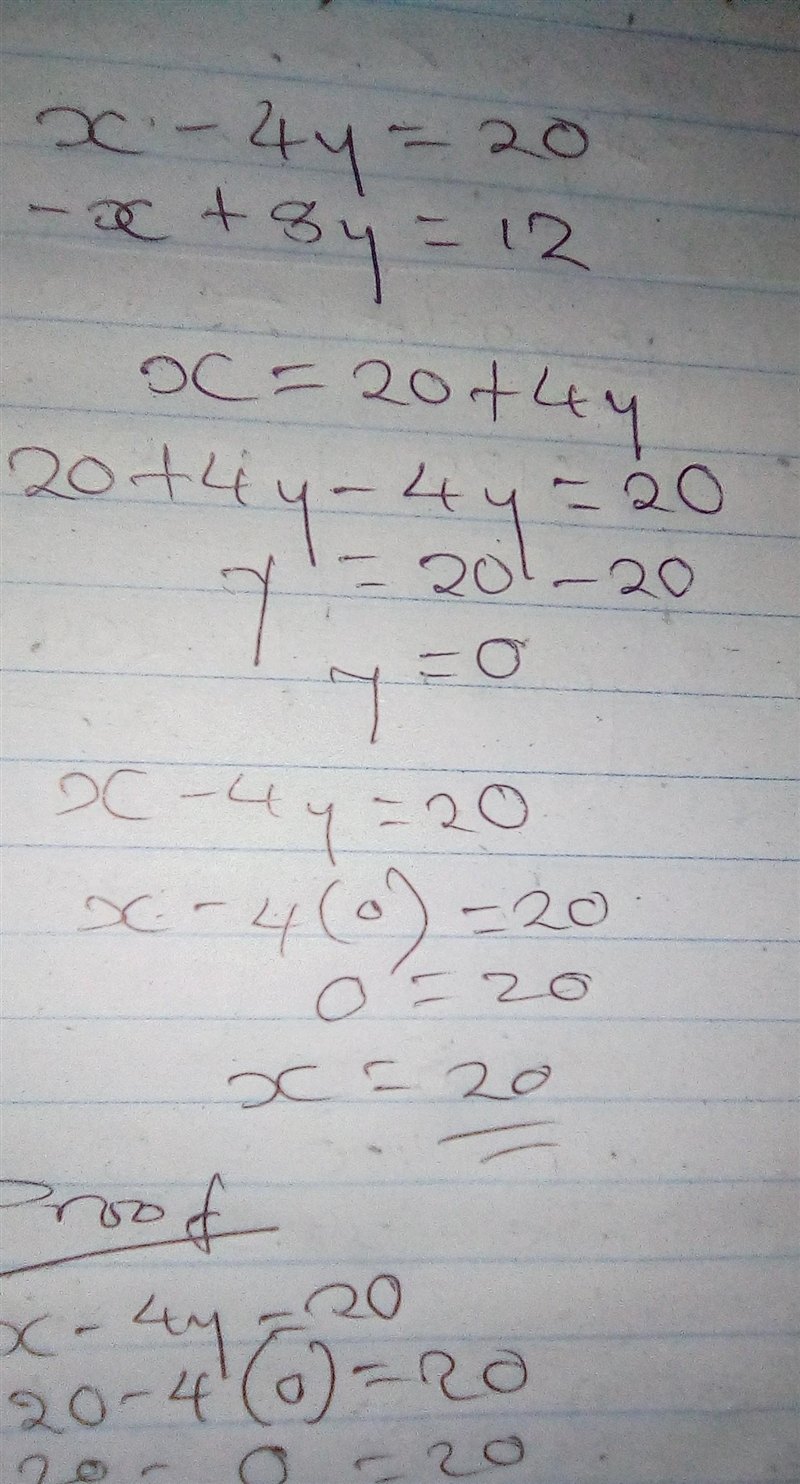 x - 4y = 20
-x + 8y = 12
x = 20 + 4y
20 + 4y - 4y = 20
y = 20 - 20
y = 0
x - 4y = 20
x - 4(0) = 20
0 = 20
x = 20
Proof
x - 4y = 20
20 - 4(0) = 20
20 - 0 = 20